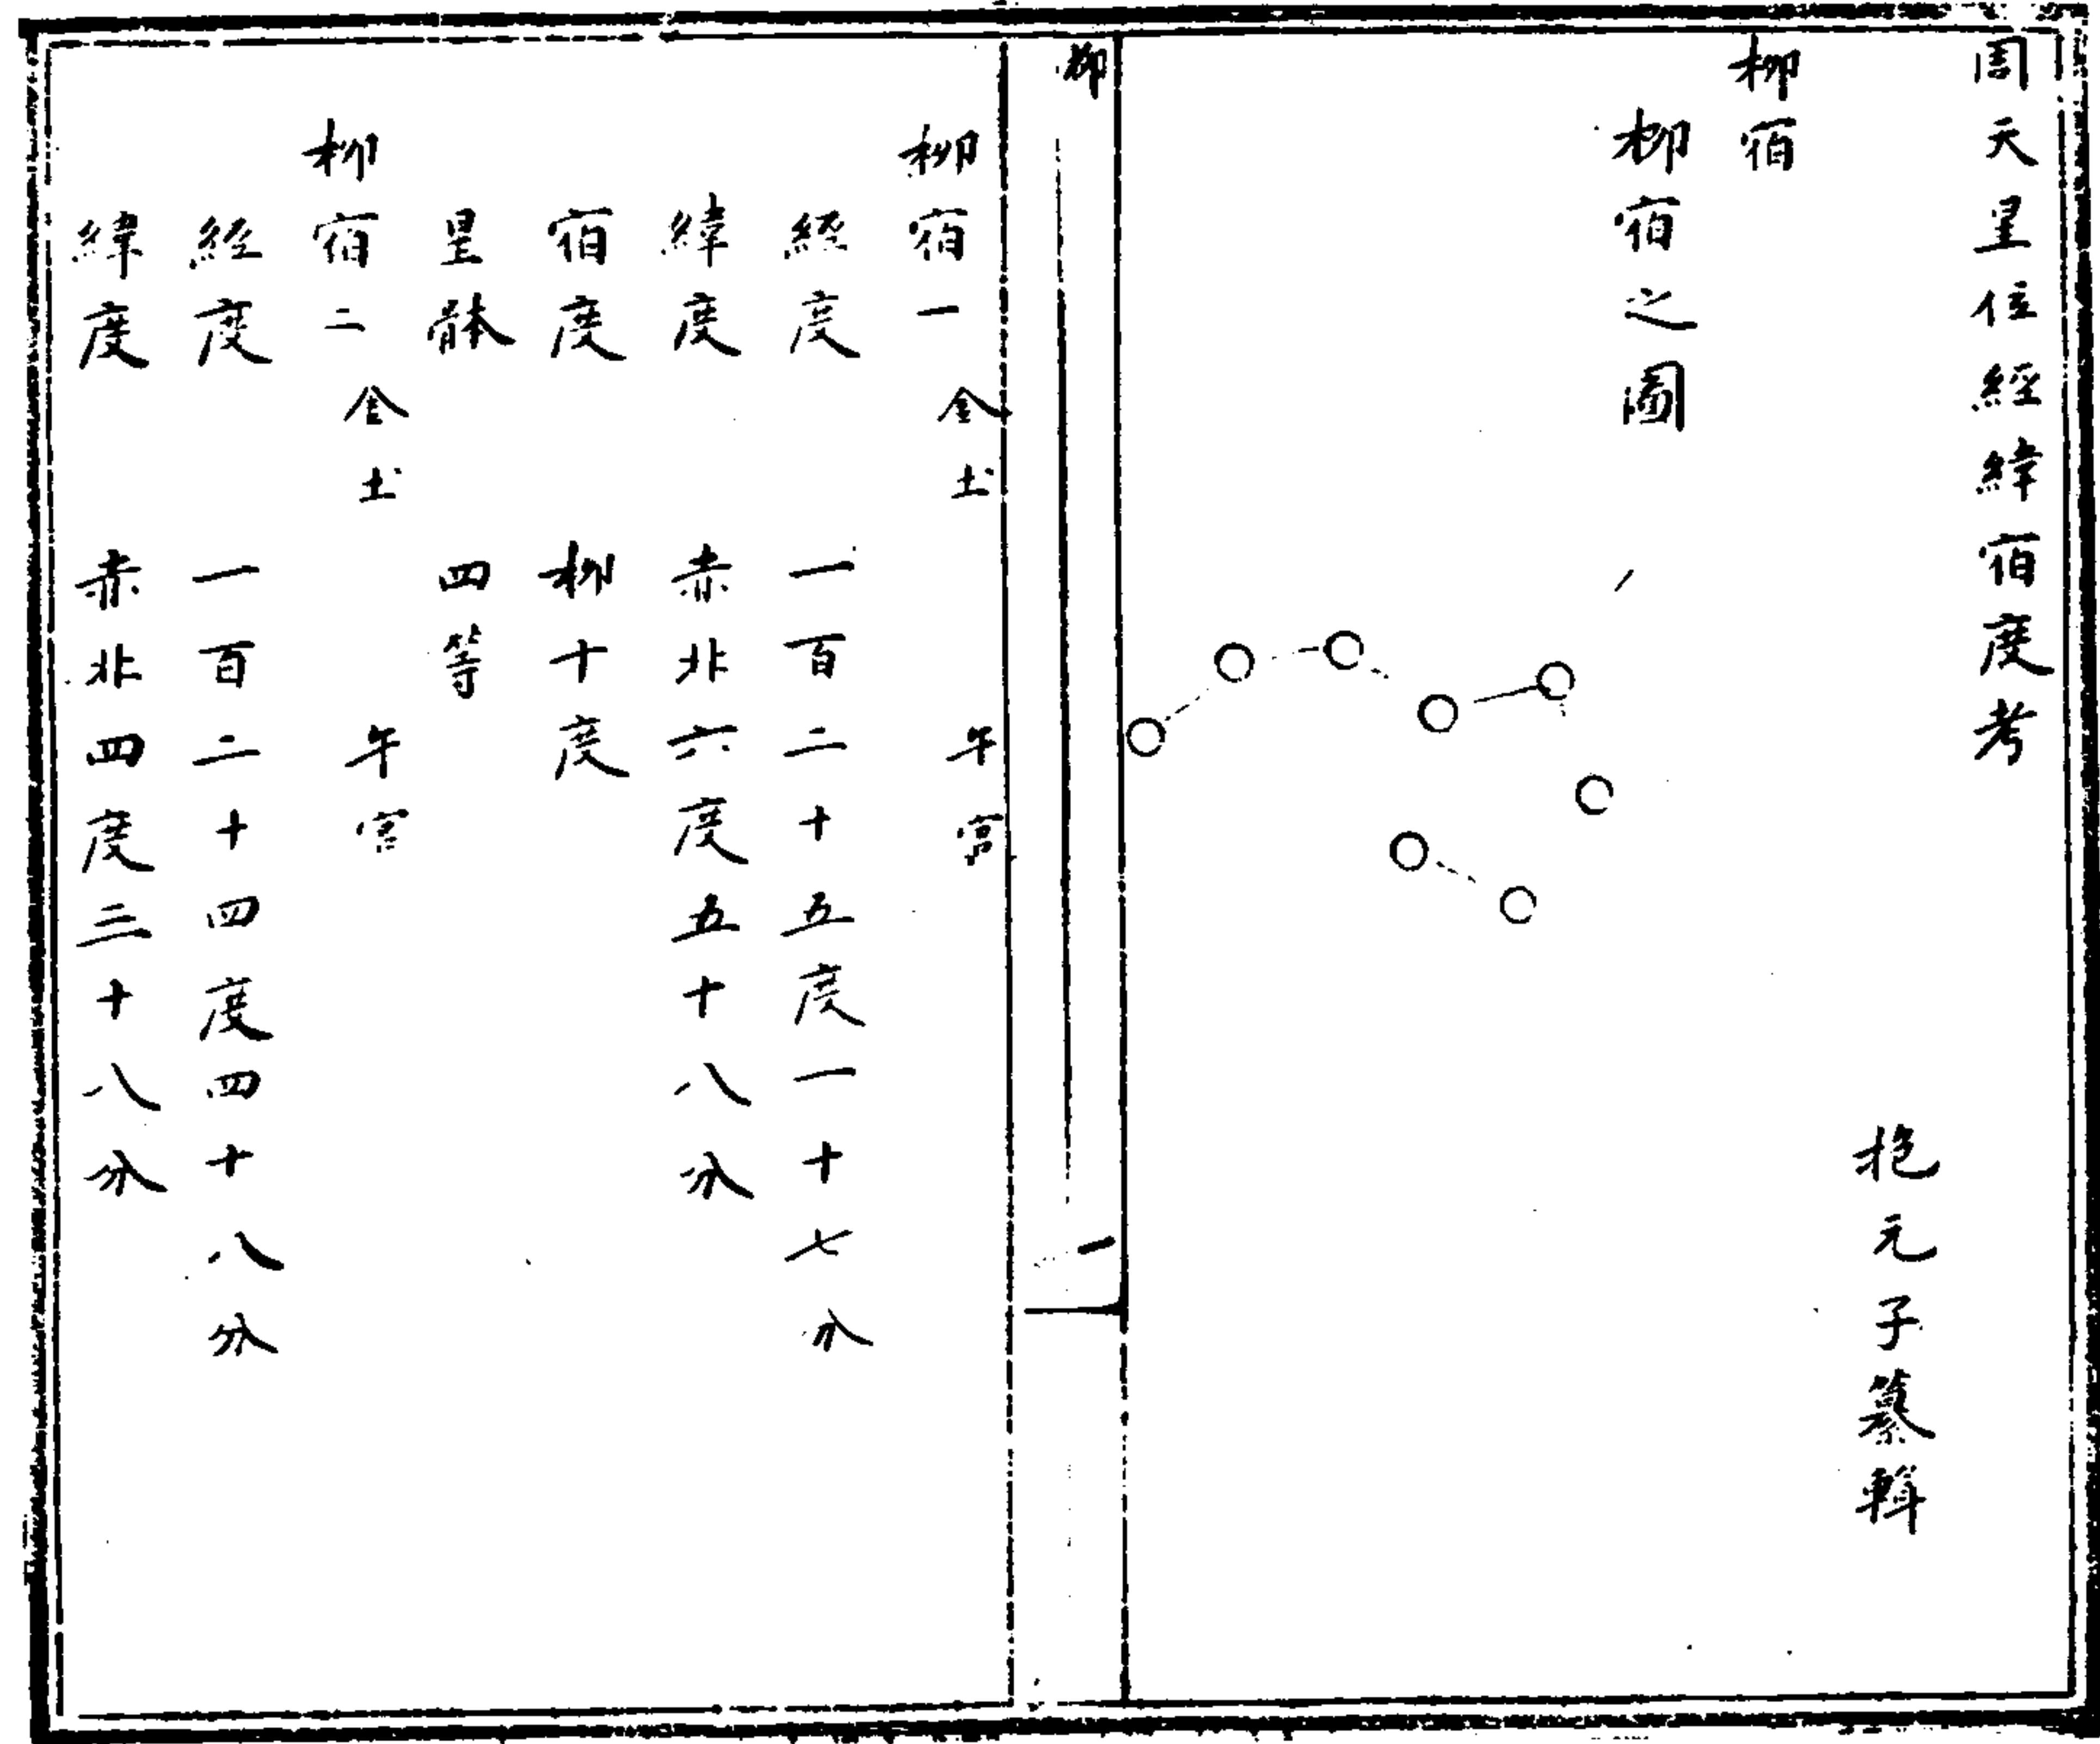 周天星位經緯宿度考
抱元子纂輯
柳宿
柳宿之圖
柳
一
柳宿一 金土 午宮
經度 一百二十五度一十七分
緯度 赤北六度五十八分
宿度 柳十度
星體 四等
柳宿二 金土 午宮
經度 一百二十四度四十八分
緯度 赤北四度三十八分